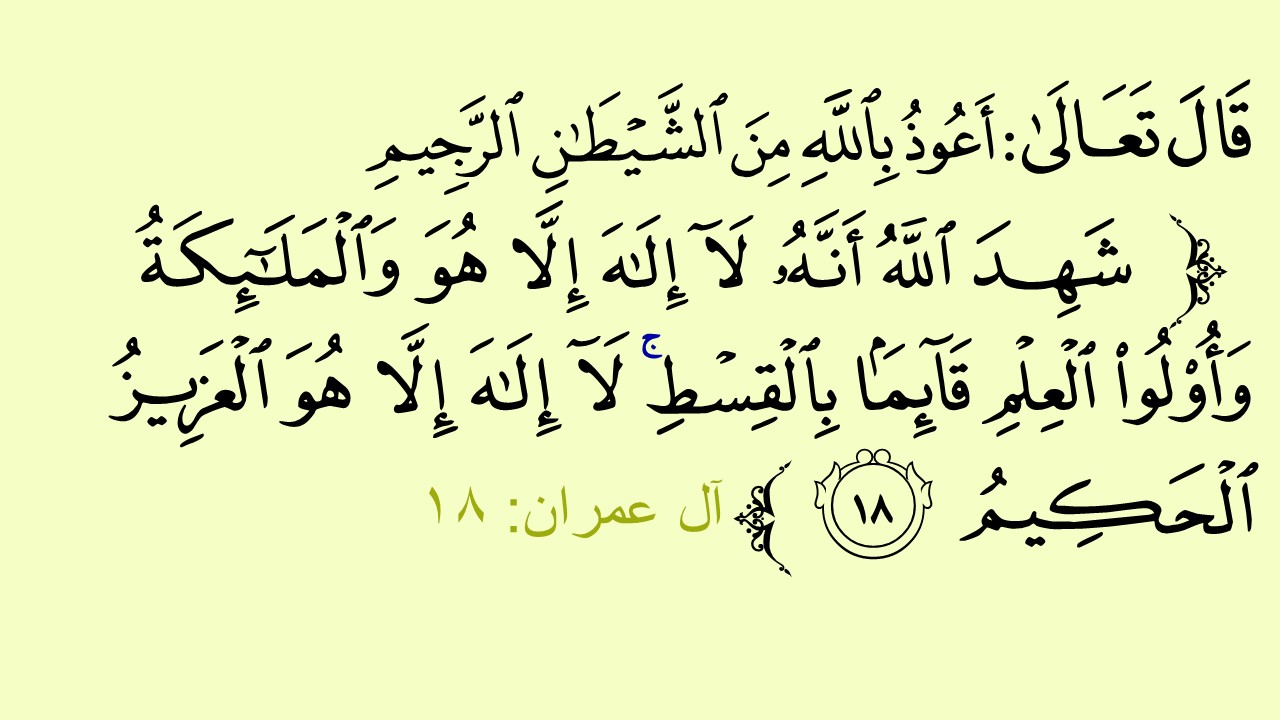 قَالَ تَعَالَىٰ: أَعُوذُ بِٱللَّهِ مِنَ ٱلشَّيۡطَٰنِ ٱلرَّجِيمِ
﴿ شَهِدَ ٱللَّهُ أَنَّهُۥ لَآ إِلَٰهَ إِلَّا هُوَ وَٱلۡمَلَٰٓئِكَةُ
وَأُوْلُواْ ٱلۡعِلۡمِ قَآئِمَۢا بِٱلۡقِسۡطِۚ لَآ إِلَٰهَ إِلَّا هُوَ ٱلۡعَزِيزُ
ٱلۡحَكِيمُ ١٨ ﴾ آل عمران: ١٨